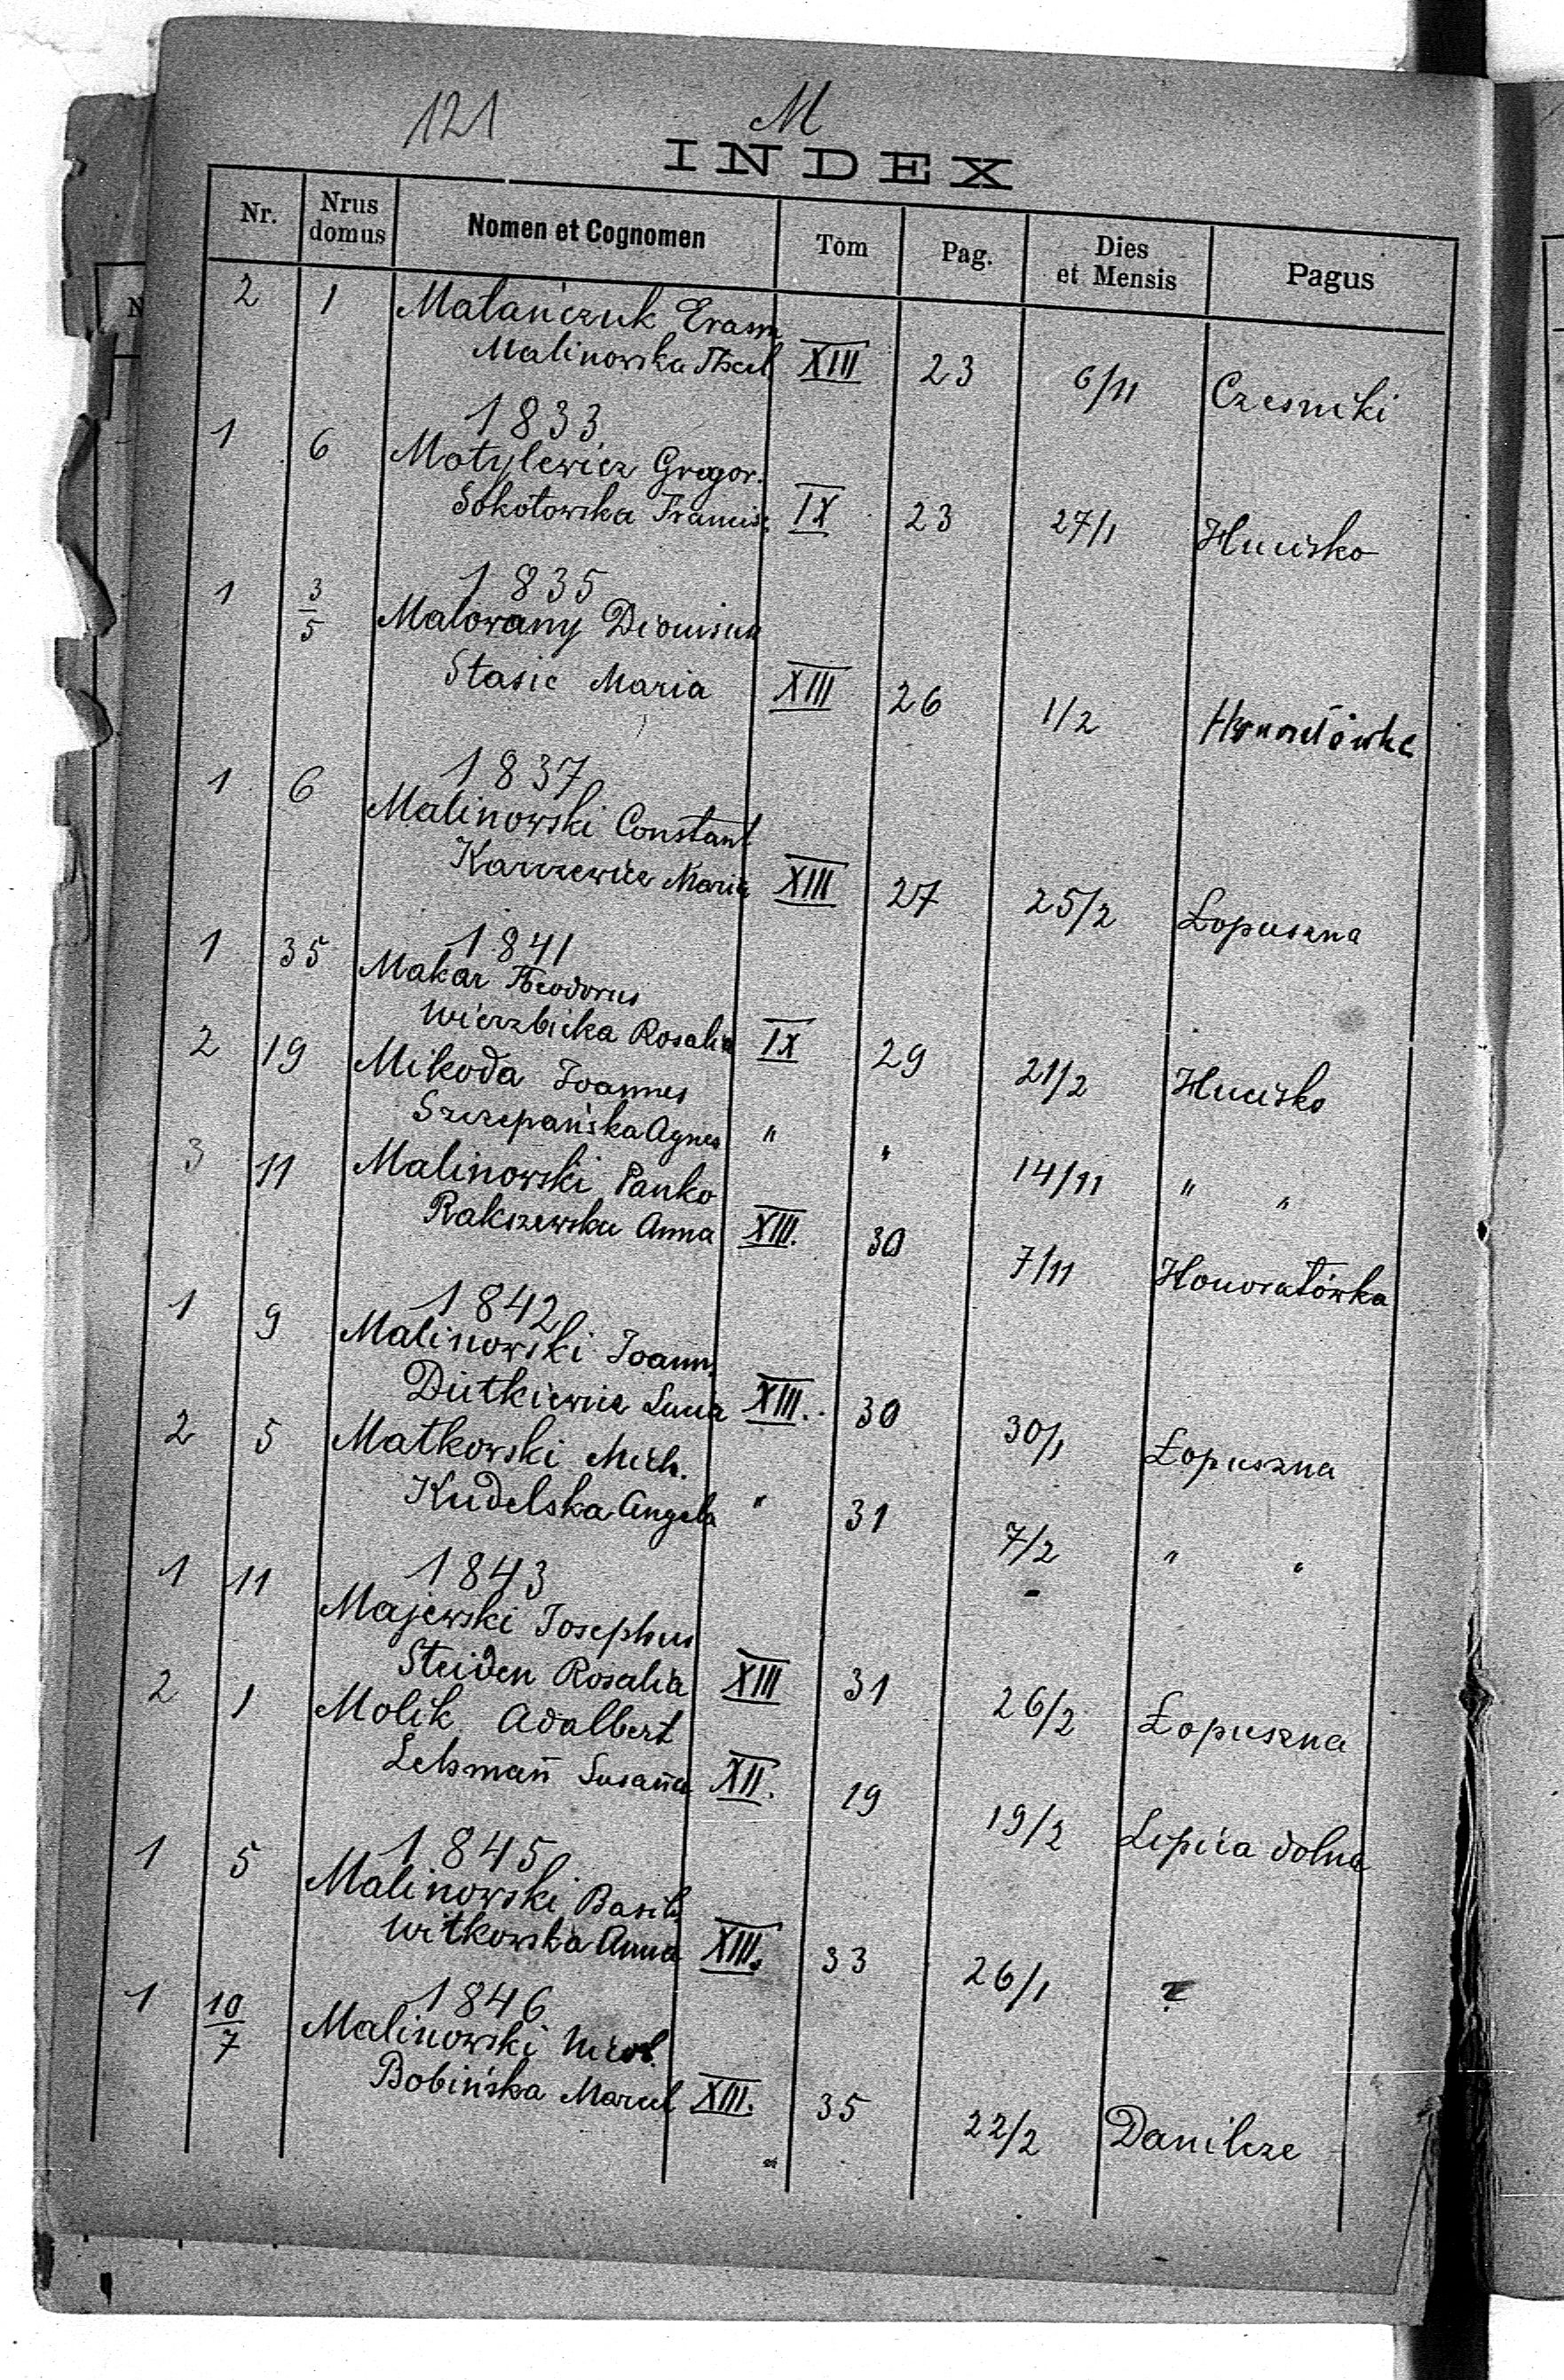 121 M
INDEX
Nr. Nrus domus Nomen et Cognomen Tom Pag. Dies et Mensis Pagus
2 1 Matańczuk Erasm.
Malinowska Thecl XIII 23 6/11 Czesniki
1833
1 6 Motylewicz Gregor.
Sokołowska Francisc. IX 23 27/1 Hucisko
1835
1 3/5 Malowany Dionisius
Stasic Maria XIII 26 1/2 Honoratówka
1837
1 6 Malinowski Constant.
Karczewicz Maria XIII 27 25/2 Łopuszna
1841
1 35 Makar Theodorus
Wierzbicka Rosalia IX 29 21/2 Hucisko
2 19 Mikoda Joannes
Szczepańska Agnes " " 14/11 " "
3 11 Malinowski Panko
Rakszewska Anna XIII. 30 7/11 Honoratówka
1842
1 9 Malinowski Joann.
Dutkiewicz Lucia XIII. 30 30/1 Łopuszna
2 5 Matkowski Mich.
Kudelska Angela " 31 7/2 " "
1843
1 11 Majewski Josephus
Steiden Rosalia XIII 31 26/2 Łopuszna
2 1 Molik Adalbert
Lehman̄ Susan̄a XII. 19 19/2 Lipica dolna
1845
1 5 Malinowski Basil.
Witkowska Anna XIII. 33 26/1 ?
1846
1 10/7 Malinowski Nicol.
Bobińska Marcel XIII. 35 22/2 Danilcze